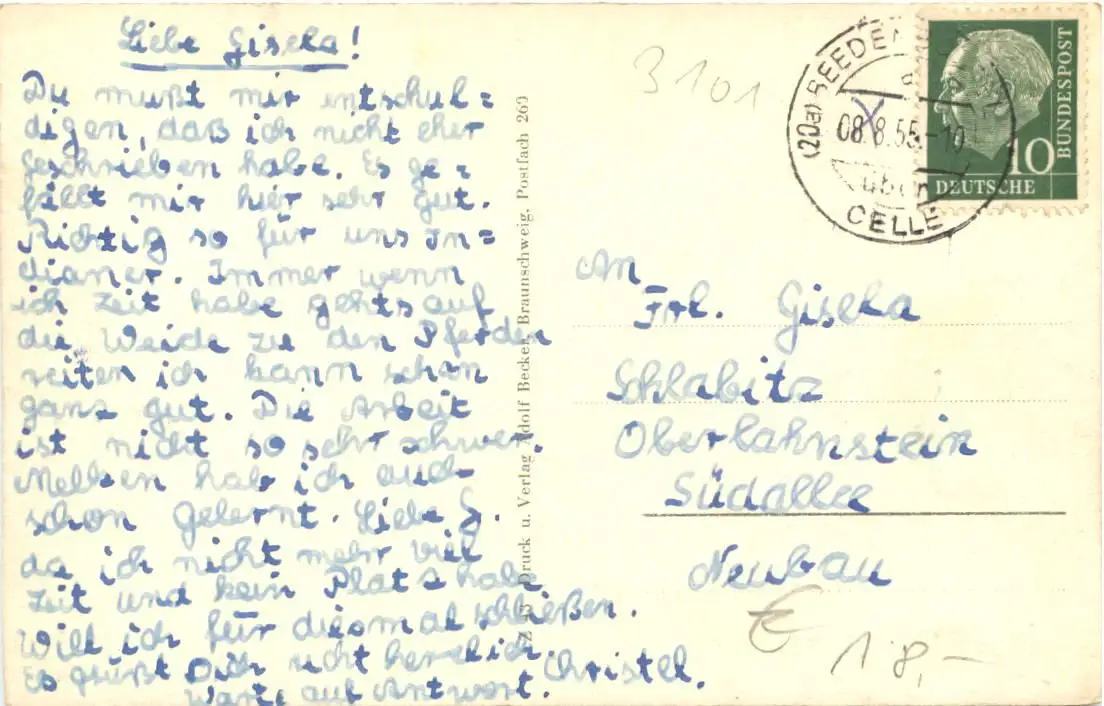 Liebe Gisela!
Du mußt mir entschul=
digen, daß ich nicht eher
geschrieben habe. Es ge=
fällt mir hier sehr gut.
Richtig so für uns In=
dianer. Immer wenn
ich Zeit habe gehts auf
die Weide zu den Pferden
reiten ich kann schon
ganz gut. Die Arbeit
ist nicht so sehr schwer.
Melken hab ich auch
schon gelernt. Liebe G.
da ich nicht mehr viel
Zeit und kein Platz habe
will ich für diesmal schließen.
Es grüßt Dich recht herzlich
Christel.
Warte auf Antwort.
Z 43 Druck u. Verlag Adolf Becker, Braunschweig, Postfach 269
3101
(20a) BEEDEN
08.8.55.-10
über
CELLE
10
DEUTSCHE
BUNDESPOST
An
Frl. Gisela
Schlabitz
Oberlahnstein
Südallee
Neubau
€ 18,-